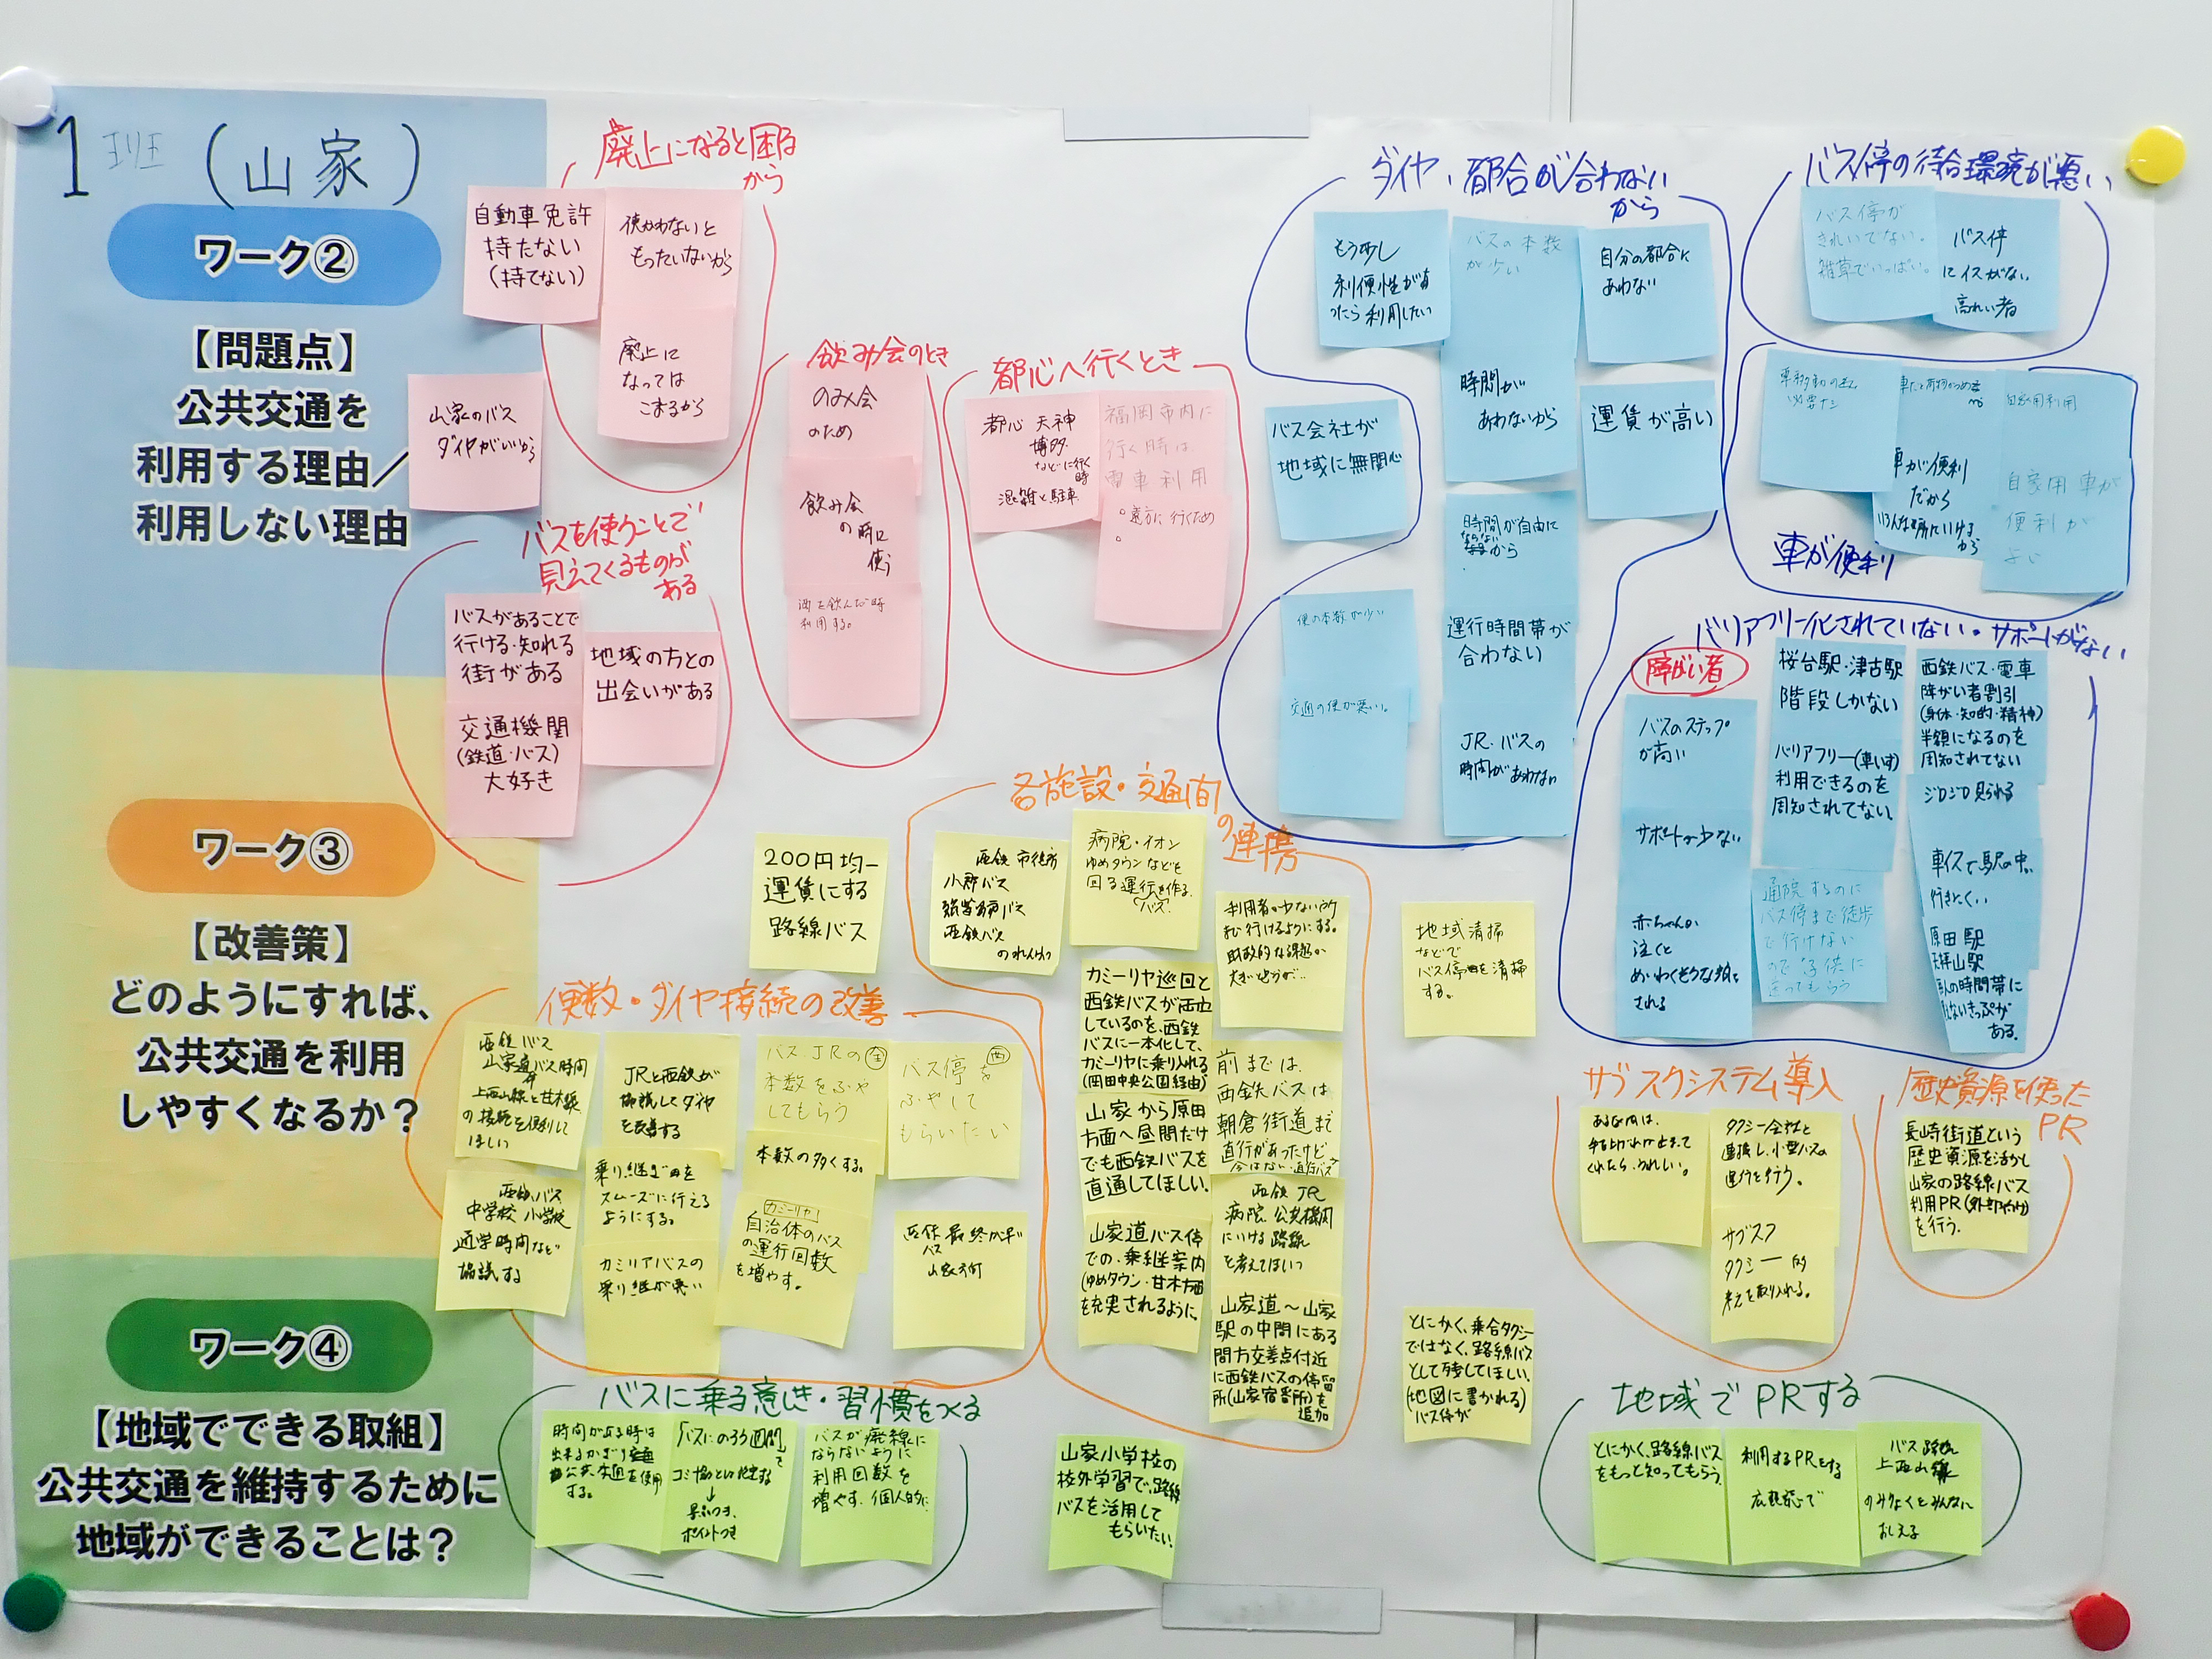 1班 (山家)
ワーク②
【問題点】
公共交通を
利用する理由／
利用しない理由
廃止になると困る
から
自動車免許
持たない
(持てない)
使わないと
もったいないから
廃止に
なっては
こまるから
山家のバス
ダイヤがいいから
バスを使うことで
見えてくるものが
ある
バスがあることで
行ける・知れる
街がある
地域の方との
出会いがある
交通機関
(鉄道・バス)
大好き
飲み会のとき
のみ会
のため
飲み会
の時に
使う
酒を飲んだ時
利用する。
都心へ行くとき
都心 天神
博多
などに行く
時
混雑と駐車
福岡市内に
行く時は
電車利用
遠方に行くため
ダイヤ、都合が合わない
から
もう少し
利便性が有
ったら利用したい
バスの本数
が少い
自分の都合に
あわない
時間が
あわないから
運賃が高い
バス会社が
地域に無関心
時間が自由に
ならない
から
便の本数が少い
運行時間帯が
合わない
交通の便が悪い。
JR・バスの
時間があわない
バス停の待合環境が悪い
バス停が
きれいでない。
雑草でいっぱい。
バス停
にイスがない
高れい者
車が便利
自家用利用
車が便利
だから
いろんな場所にいける
から
自家用車が
便利が
よい
バリアフリー化されていない・サポートがない
障がい者
バスのステップ
が高い
サポートが少ない
赤ちゃんが
泣くと
めいわくそうな顔を
される
桜台駅・津古駅
階段しかない
バリアフリー(車いす)
利用できるのを
周知されてない
通院するのに
バス停まで徒歩
で行けない
ので子供に
送ってもらう
西鉄バス・電車
障がい者割引
(身体・知的・精神)
半額になるのを
周知されてない
ジロジロ見られる
車イスで駅の中、
行きにくい
原田駅
天拝山駅
の時間帯に
ないきっぷが
ある。
ワーク③
【改善策】
どのようにすれば、
公共交通を利用
しやすくなるか？
200円均一
運賃にする
路線バス
各施設・交通間
の連携
西鉄 市役所
小郡バス
筑紫野市バス
西鉄バス
のれんけつ
病院・イオン
ゆめタウンなどを
回る運行を作る。
バス
利用者の少ない所
も行けるようにする。
財政的な課題が
大きいと思うが…
カミーリヤ巡回と
西鉄バスが両立
しているのを、西鉄
バスに一本化して、
カミーリヤに乗り入れる
(岡田中央公園経由)
前までは、
西鉄バスは
朝倉街道まで
直行があったけど
今はない・直行バス
山家から原田
方面へ昼間だけ
でも西鉄バスを
直通してほしい。
西鉄 JR
病院 公共機関
にいける路線
を考えてほしい
山家道バス停
での乗継案内
(ゆめタウン・甘木方面)
を充実されるように。
山家道～山家
駅の中間にある
間方交差点付近
に西鉄バスの停留
所(山家宿番所)を
追加
便数・ダイヤ接続の改善
西鉄バス
山家道バス時間
上西山線と甘木線
の接続を便利して
ほしい
JRと西鉄が
協議してダイヤ
を改善する
バス JRの
本数をふや
してもらう
バス停を
ふやして
もらいたい
西鉄バス
中学校 小学校
通学時間など
協議する
乗り継ぎ を
スムーズに行える
ようにする。
本数の多くする。
カミリアバスの
乗り継が悪い
カミーリヤ
自治体のバス
の運行回数
を増やす。
西鉄最終が早
バス
山家方面
地域清掃
などで
バス停を清掃
する。
とにかく、乗合タクシー
ではなく、路線バス
として残してほしい。
(地図に書かれる)
バス停が
サブスクシステム導入
ある区間は、
手を上げれば止まって
くれたらうれしい。
タクシー会社と
連携し、小型バスの
運行を行う。
サブスク
タクシー 的
考えを取り入れる。
歴史資源を使った
PR
長崎街道という
歴史資源を活かし
山家の路線バス
利用PR(外部向け)
を行う。
ワーク④
【地域でできる取組】
公共交通を維持するために
地域ができることは？
バスに乗る意しき・習慣をつくる
時間が有る時は
出来るかぎり
公共交通を使用
する。
「バスにのろう週間」を
コミ協といっしょにする
↓
景品つき、
ポイントつき
バスが廃線に
ならないように
利用回数を
増やす。個人的に
山家小学校の
校外学習で、路線
バスを活用して
もらいたい。
地域でPRする
とにかく、路線バス
をもっと知ってもらう。
利用するPRをする
広報などで
バス路線
上西山線
のみりょくをみんなに
おしえる